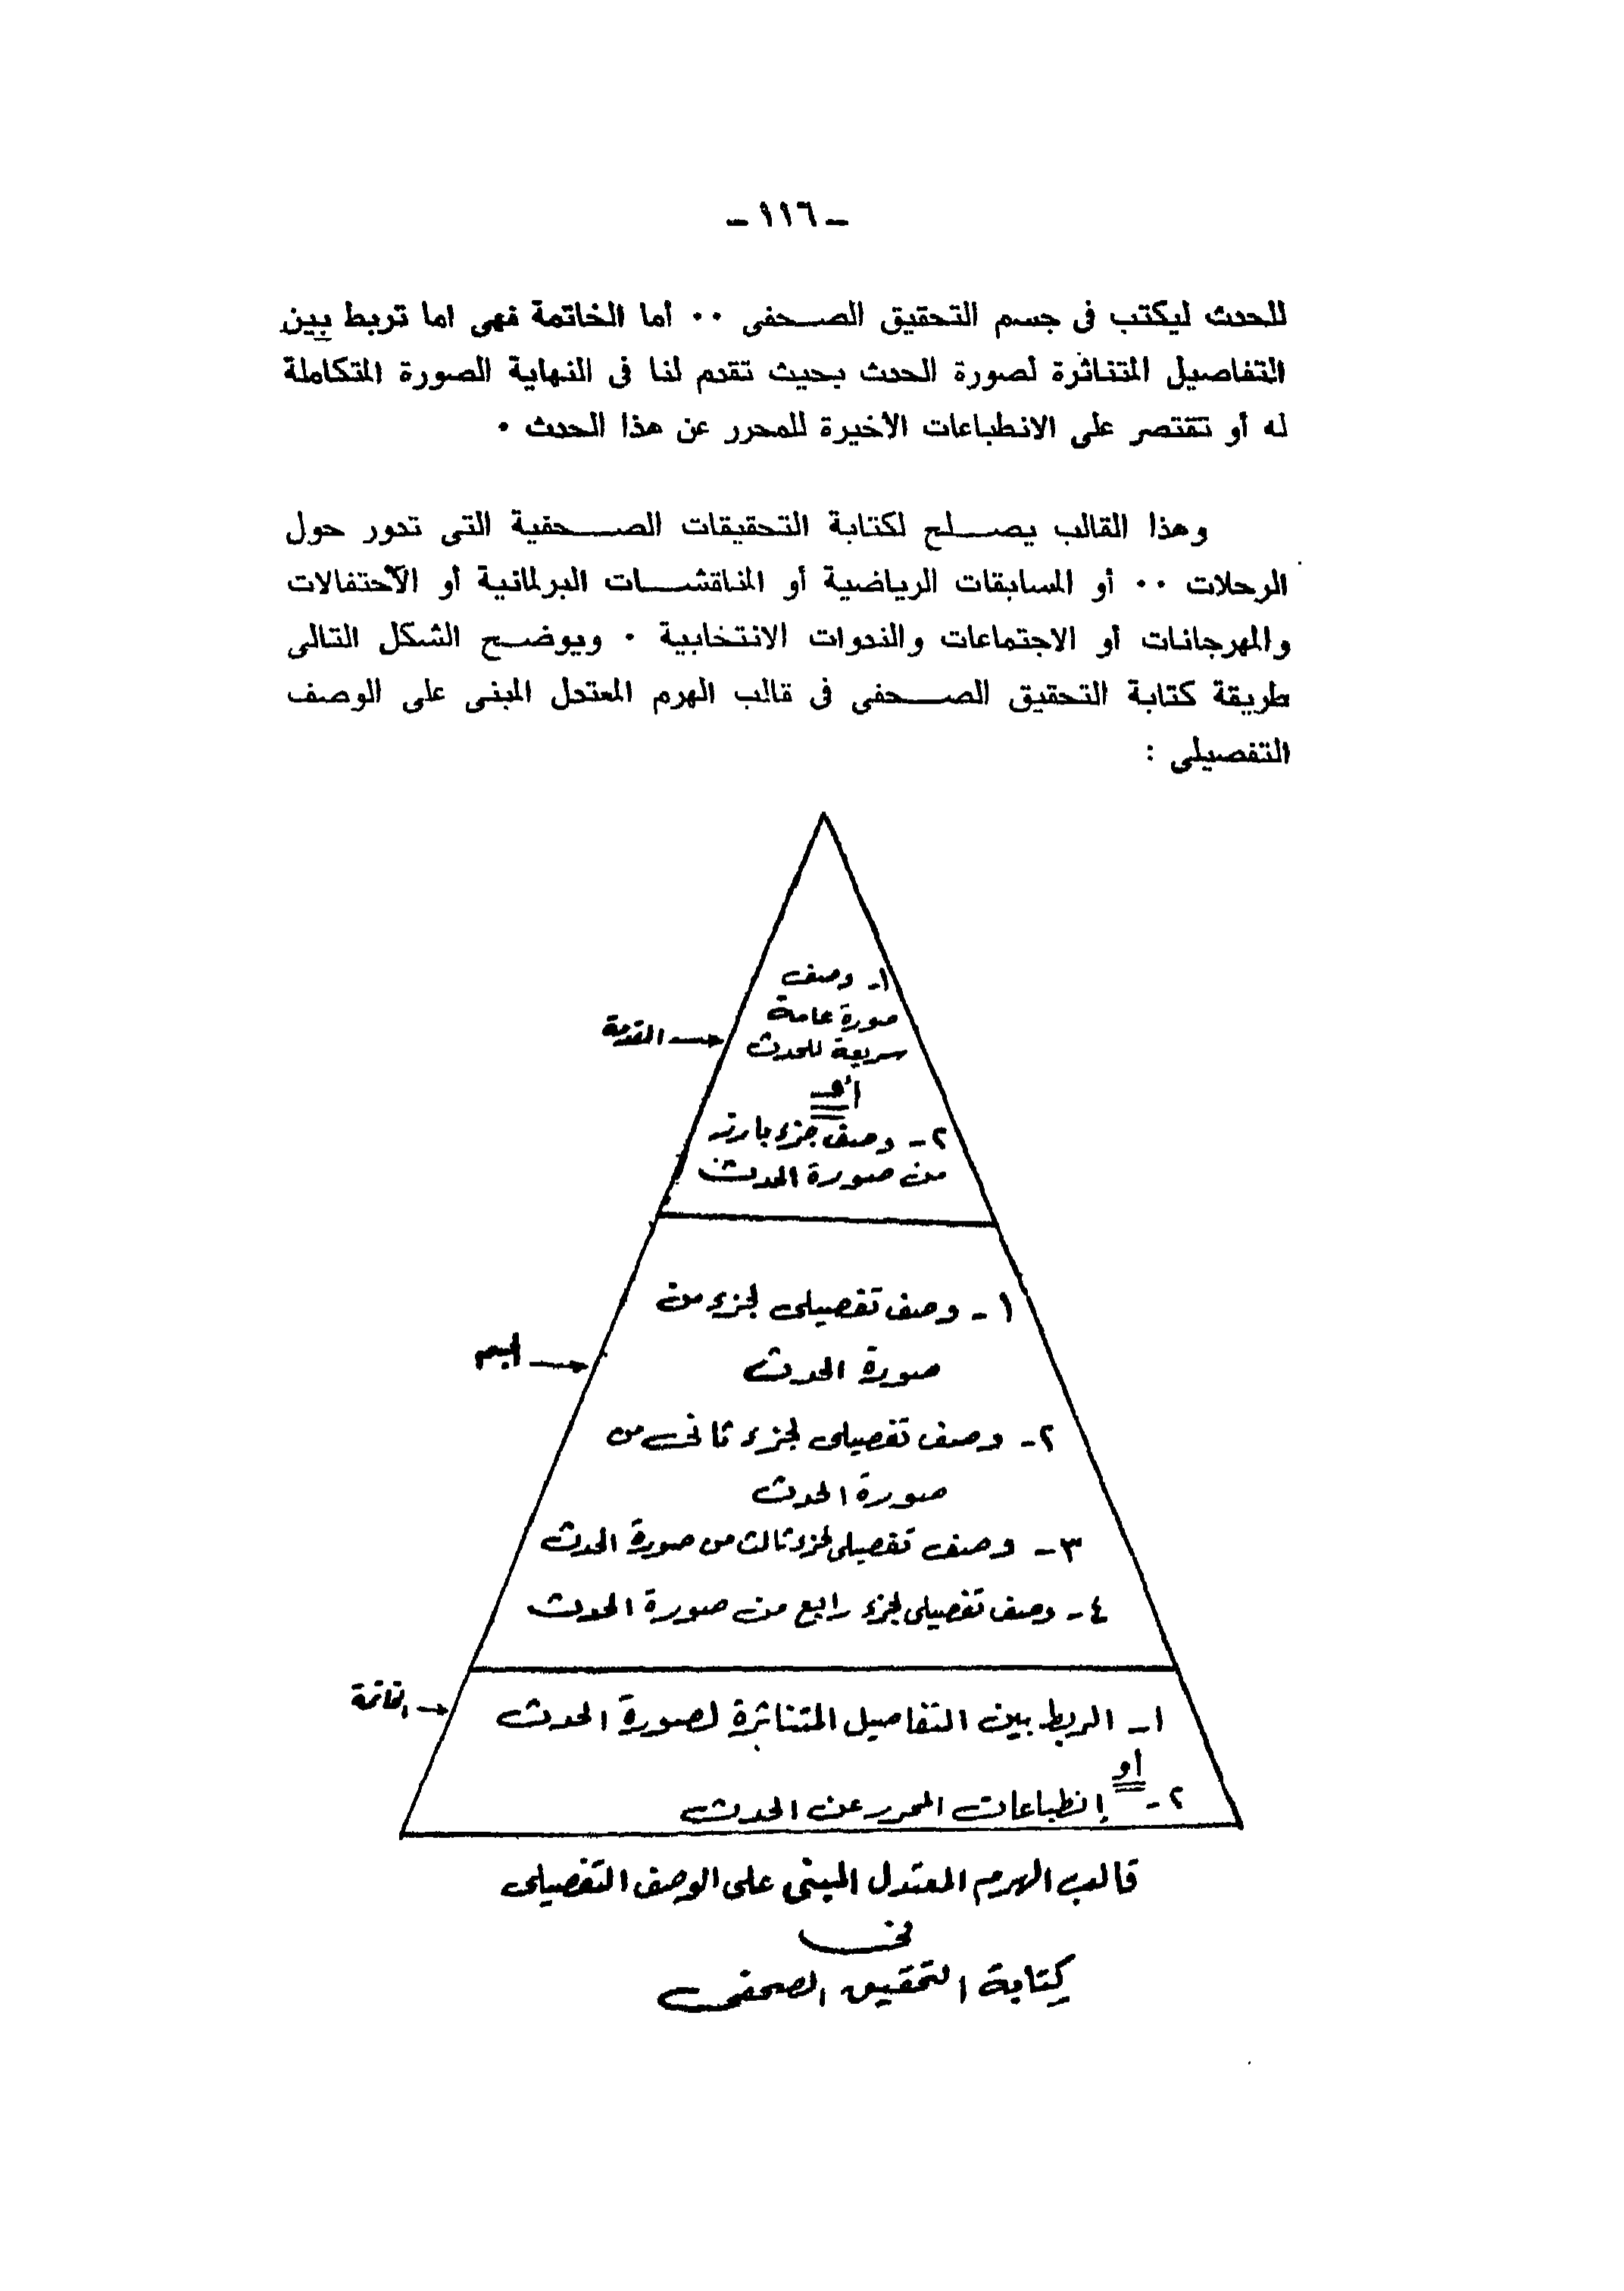 ـ ١١٦ ـ
للحدث ليكتب فى جسم التحقيق الصحفى ٠٠ أما الخاتمة فهى اما تربط بين
التفاصيل المتناثرة لصورة الحدث بحيث تقدم لنا فى النهاية الصورة المتكاملة
له أو تقتصر على الانطباعات الأخيرة للمحرر عن هذا الحدث ٠
وهذا القالب يصلح لكتابة التحقيقات الصحفية التى تدور حول
الرحلات ٠٠ أو المسابقات الرياضية أو المناقشات البرلمانية أو الأحتفالات
والمهرجانات أو الاجتماعات والندوات الانتخابية ٠ ويوضح الشكل التالى
طريقة كتابة التحقيق الصحفى فى قالب الهرم المعتدل المبنى على الوصف
التفصيلى :
١ـ وصف
صورة عامة
سريعة للحدث
المقدمة
أو
٢ـ وصف جزء بارز
من صورة الحدث
١ـ وصف تفصيلى لجزء من
صورة الحدث
الجسم
٢ـ وصف تفصيلى لجزء ثانى من
صورة الحدث
٣ـ وصف تفصيلى لجزء ثالث من صورة الحدث
٤ـ وصف تفصيلى لجزء رابع من صورة الحدث
الخاتمة
١ـ الربط بين التفاصيل المتناثرة لصورة الحدث
أو
٢ـ إنطباعات المحرر عن الحدث
قالب الهرم المعتدل المبنى على الوصف التفصيلى
فى
كتابة التحقيق الصحفى